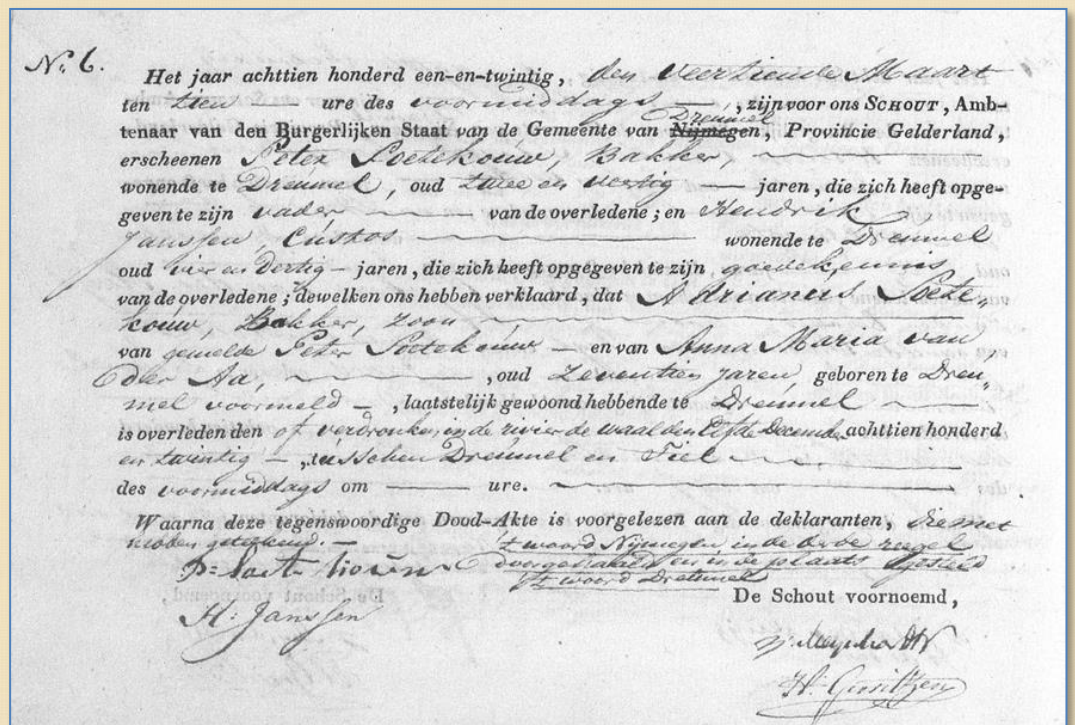 No. 6.
Het jaar achttien honderd een-en-twintig, den veertiende Maart
ten tien ure des voormiddags, zijn voor ons SCHOUT, Amb-
Dreumel
tenaar van den Burgerlijken Staat van de Gemeente van Nijmegen, Provincie Gelderland,
erscheenen Peter Soetekouw, Bakker,
wonende te Dreumel, oud twee en veertig jaren, die zich heeft opge-
geven te zijn vader van de overledene; en Hendrik
Janssen, Custos wonende te Dreumel
oud vier en dertig jaren, die zich heeft opgegeven te zijn goede kennis
van de overledene; dewelken ons hebben verklaard, dat Adrianus Soete-
kouw, Bakker, zoon
van gemelde Peter Soetekouw en van Anna Maria van
der Aa, , oud zeventien jaren, geboren te Dreu-
mel voormeld, laatstelijk gewoond hebbende te Dreumel
is overleden den of verdronken in de rivier de waal den Elfde December achttien honderd
en twintig, tusschen Dreumel en Tiel
des voormiddags om ure.
Waarna deze tegenswoordige Dood-Akte is voorgelezen aan de deklaranten, die met
't woord Nijmegen, in de derde regel
doorgehaald en in de plaats gesteld
't woord Dreumel
De Schout voornoemd,
H: Janssen